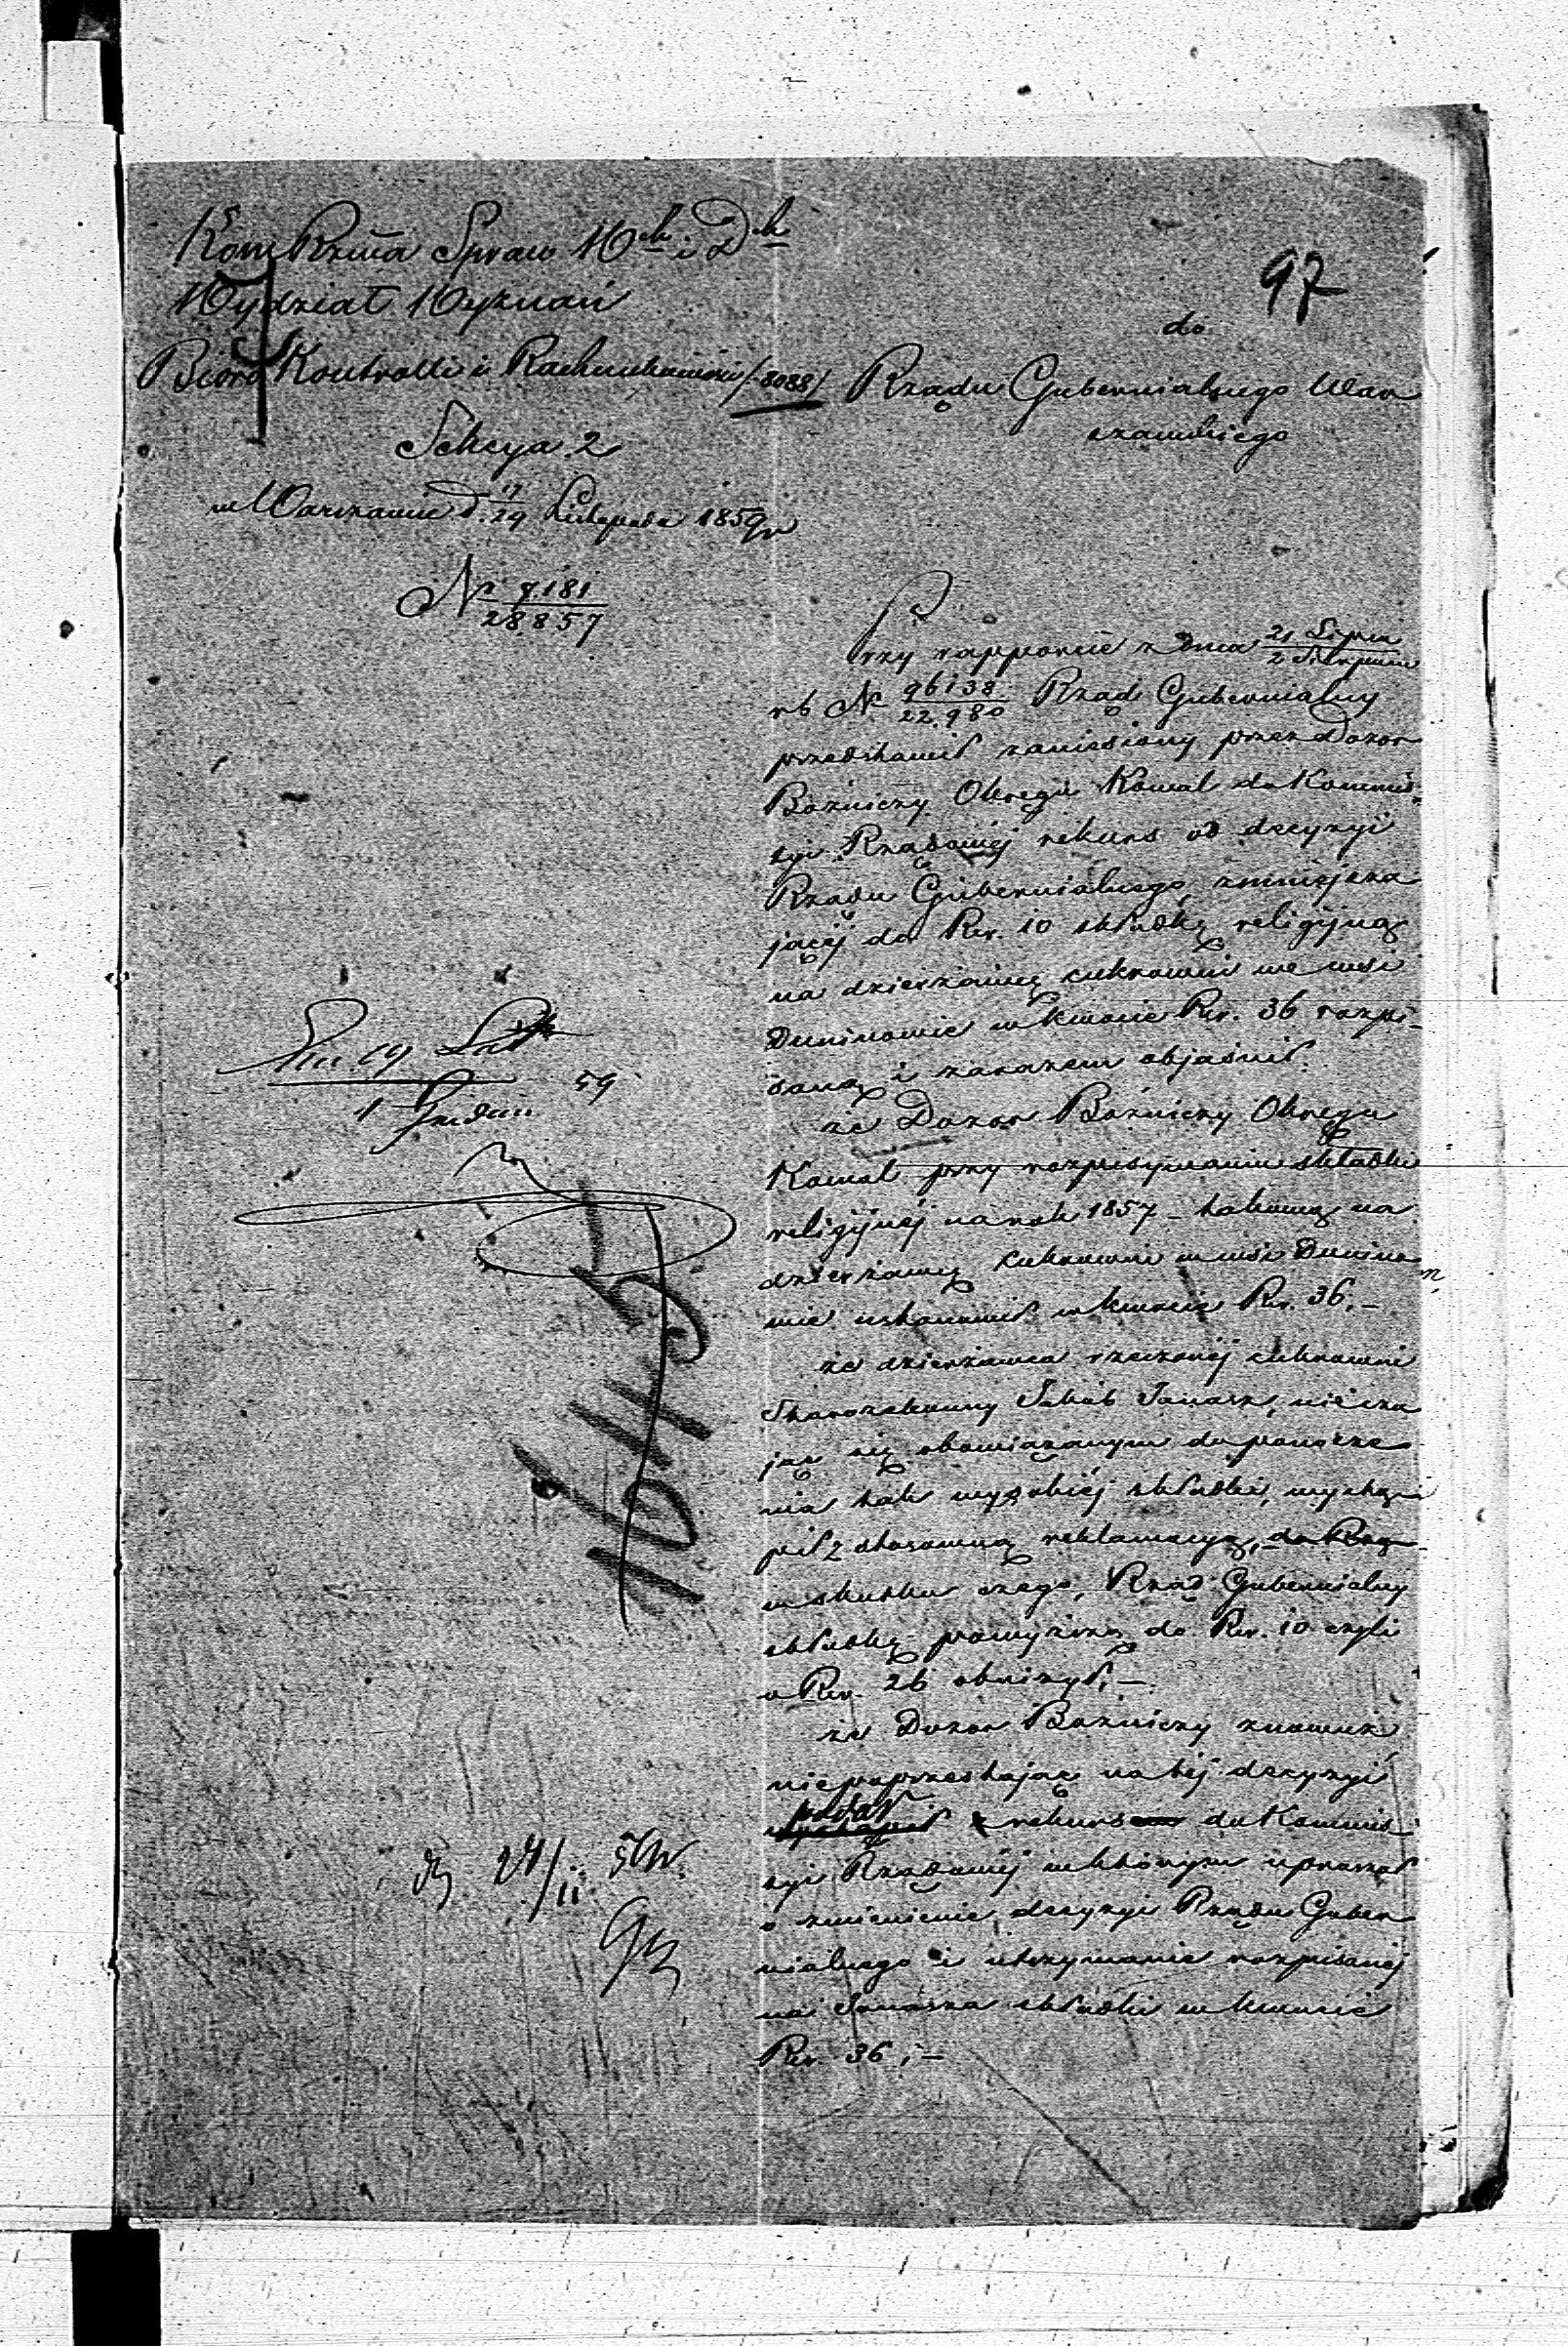 97
Kom Rzwa Spraw Wch i Dch
Wydział Wyznań
Bióro Kontrolli i Rachunkowości /8088/
Sekcya 2
w Warszawie d. 17/29 Listopada 1859 r
№ 7.181/28.857
do
Rządu Gubernialnego War
szawskiego
Przy rapporcie z dnia 21 Lipca/2 Sierpnia
rb № 96138/22.980 Rząd Gubernialny
przedstawił zaniesiony przez Dozor
Bożniczy Okręgu Kowal do Kommis-
syi Rządowéj rekurs od decyzyi
Rządu Gubernialnego zmniejsza
jącéj do Rsr. 10 składkę religijną
na dzierżawcę cukrowni we wsi
Duninowie w kwocie Rsr. 36 rozpi-
saną i zarazem objaśnił:
że Dozor Bożniczy Okręgu
Kowal przy rozpisywaniu składki
religijnéj na rok 1857 – takową na
dzierżawcę cukrowni w wsi Dunino
wie ustanowił w kwocie Rsr. 36. –
że dzierżawca rzeczonéj cukrowni
Starozakonny Jakób Janasz, nieczu
jąc się obowiązanym do ponosze
nia tak wysokiéj składki, wystą-
pił z stosowną reklamacyą, do Rzą-
w skutku czego, Rząd Gubernialny
składkę powyższą do Rsr. 10 czyli
o Rsr. 26 obniżył, –
że Dozor Bożniczy znowuż
niepoprzestając na téj decyzyi
podał
wystąpił z rekursem do Kommis-
syi Rządowéj w którym upraszał
o zmienienie decyzyi Rządu Guber
nialnego i utrzymanie rozpisanéj
na Janasza składki w kwocie
Rsr. 36, –
59
1645
24/11 59 r.